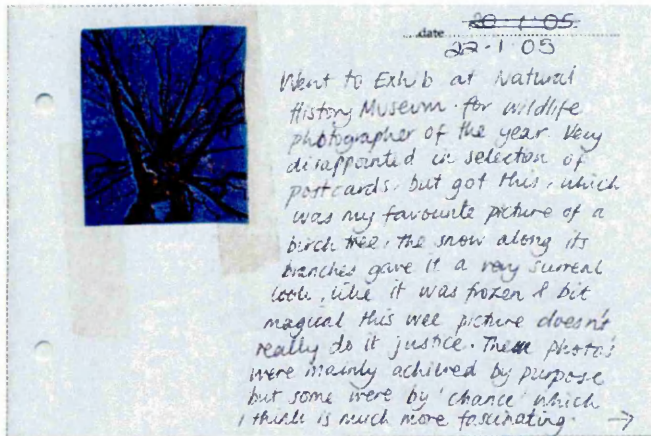 date 20·1·05
22·1·05
Went to Exhib at Natural
History Museum for wildlife
photographer of the year. Very
disappointed in selection of
postcards, but got this, which
was my favourite picture of a
birch tree, the snow along its
branches gave it a very surreal
look, like it was frozen & bit
magical this wee picture doesn't
really do it justice. These photo's
were mainly achieved by purpose
but some were by 'chance' which
I think is much more fascinating. →